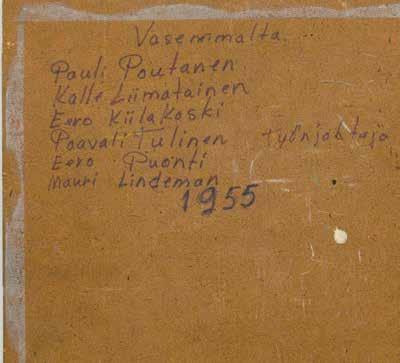 Vasemmalta.
Pauli Poutanen
Kalle Liimatainen
Eero Kiilakoski
Paavali Tulinen työnjohtaja
Eero Puonti
Mauri Lindeman
1955